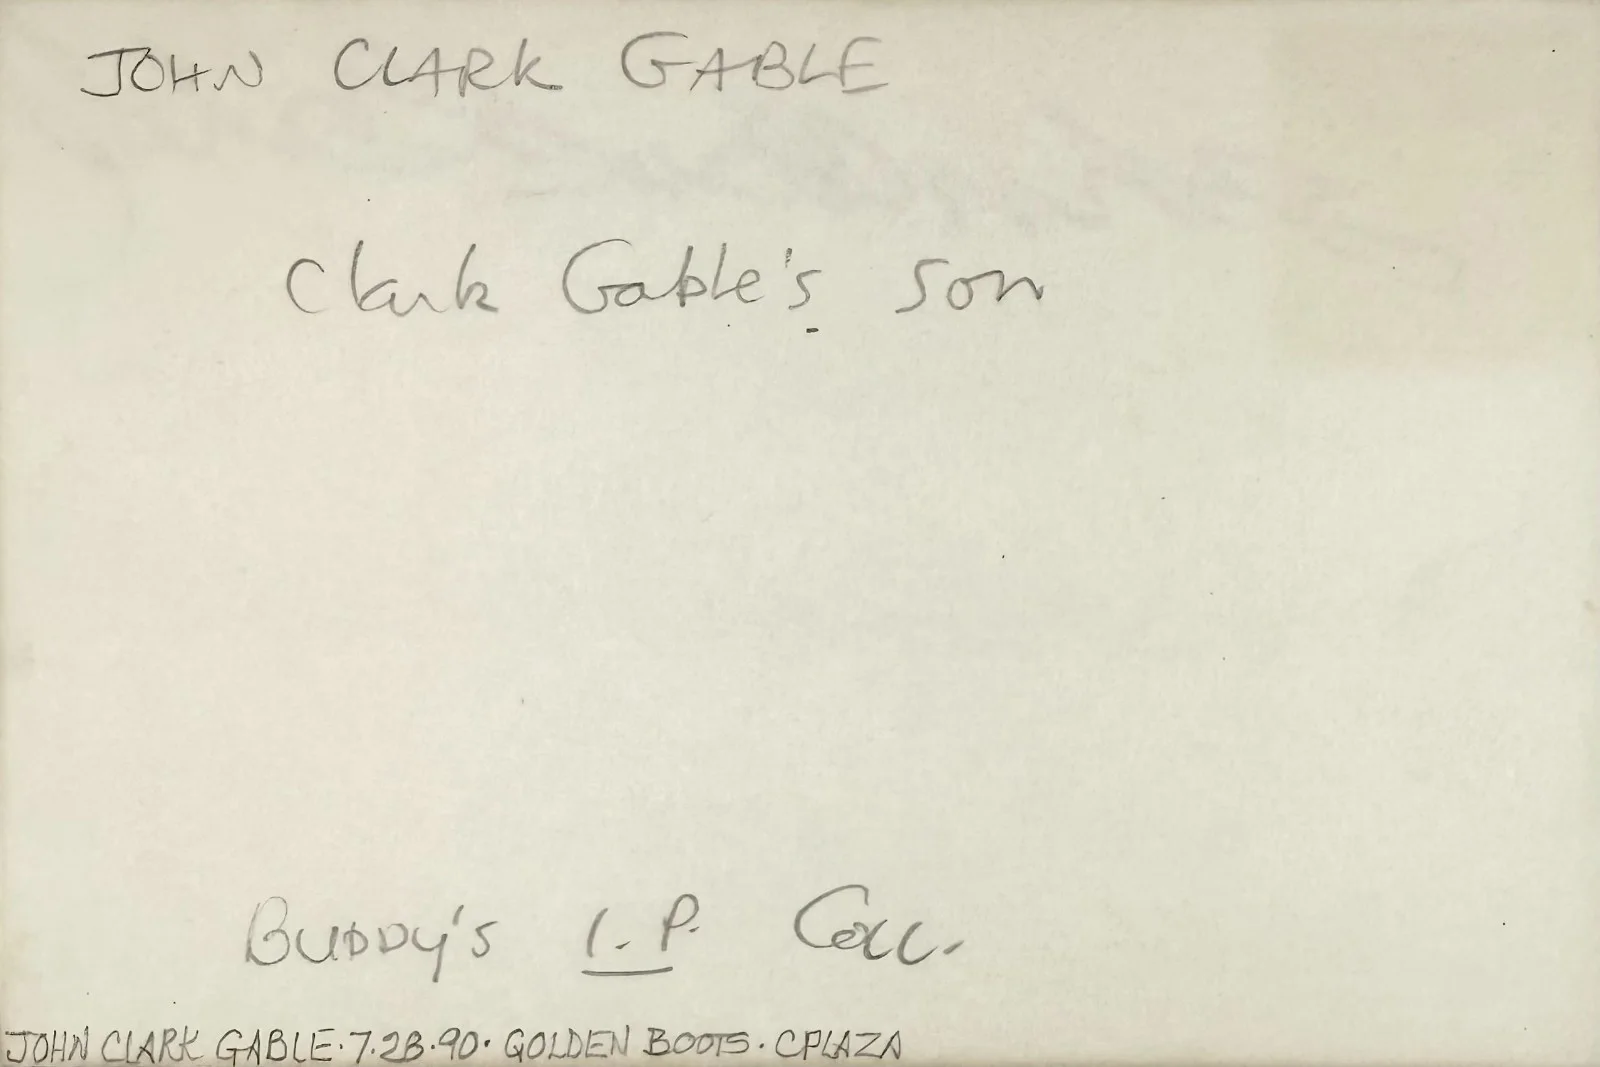 JOHN CLARK GABLE
Clark Gable's son
BUDDY'S I.P. Coll.
JOHN CLARK GABLE·7·28·90· GOLDEN BOOTS· CPLAZA